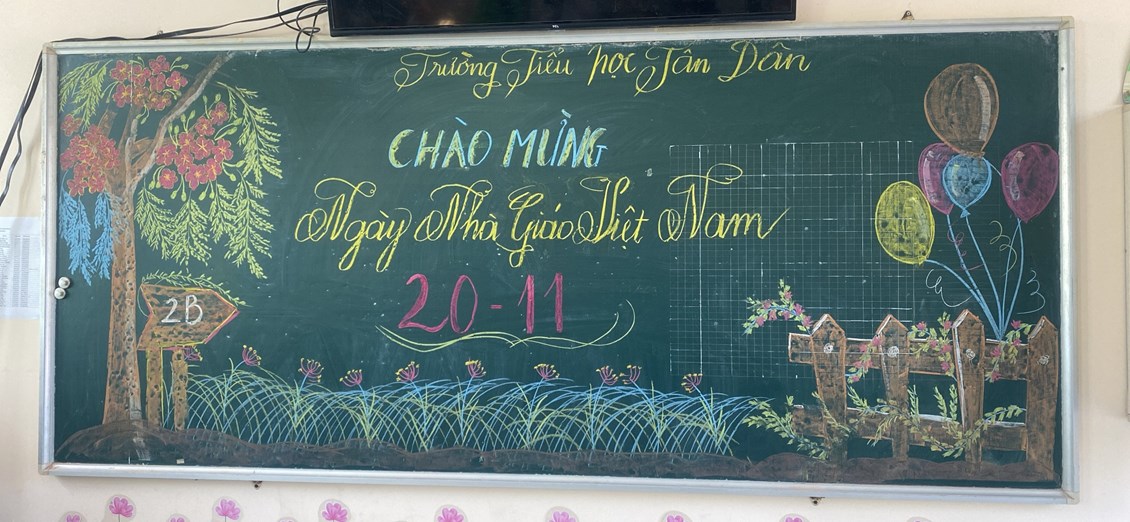 TCL
Trường Tiểu học Tân Dân
CHÀO MỪNG
Ngày Nhà Giáo Việt Nam
20-11
2B